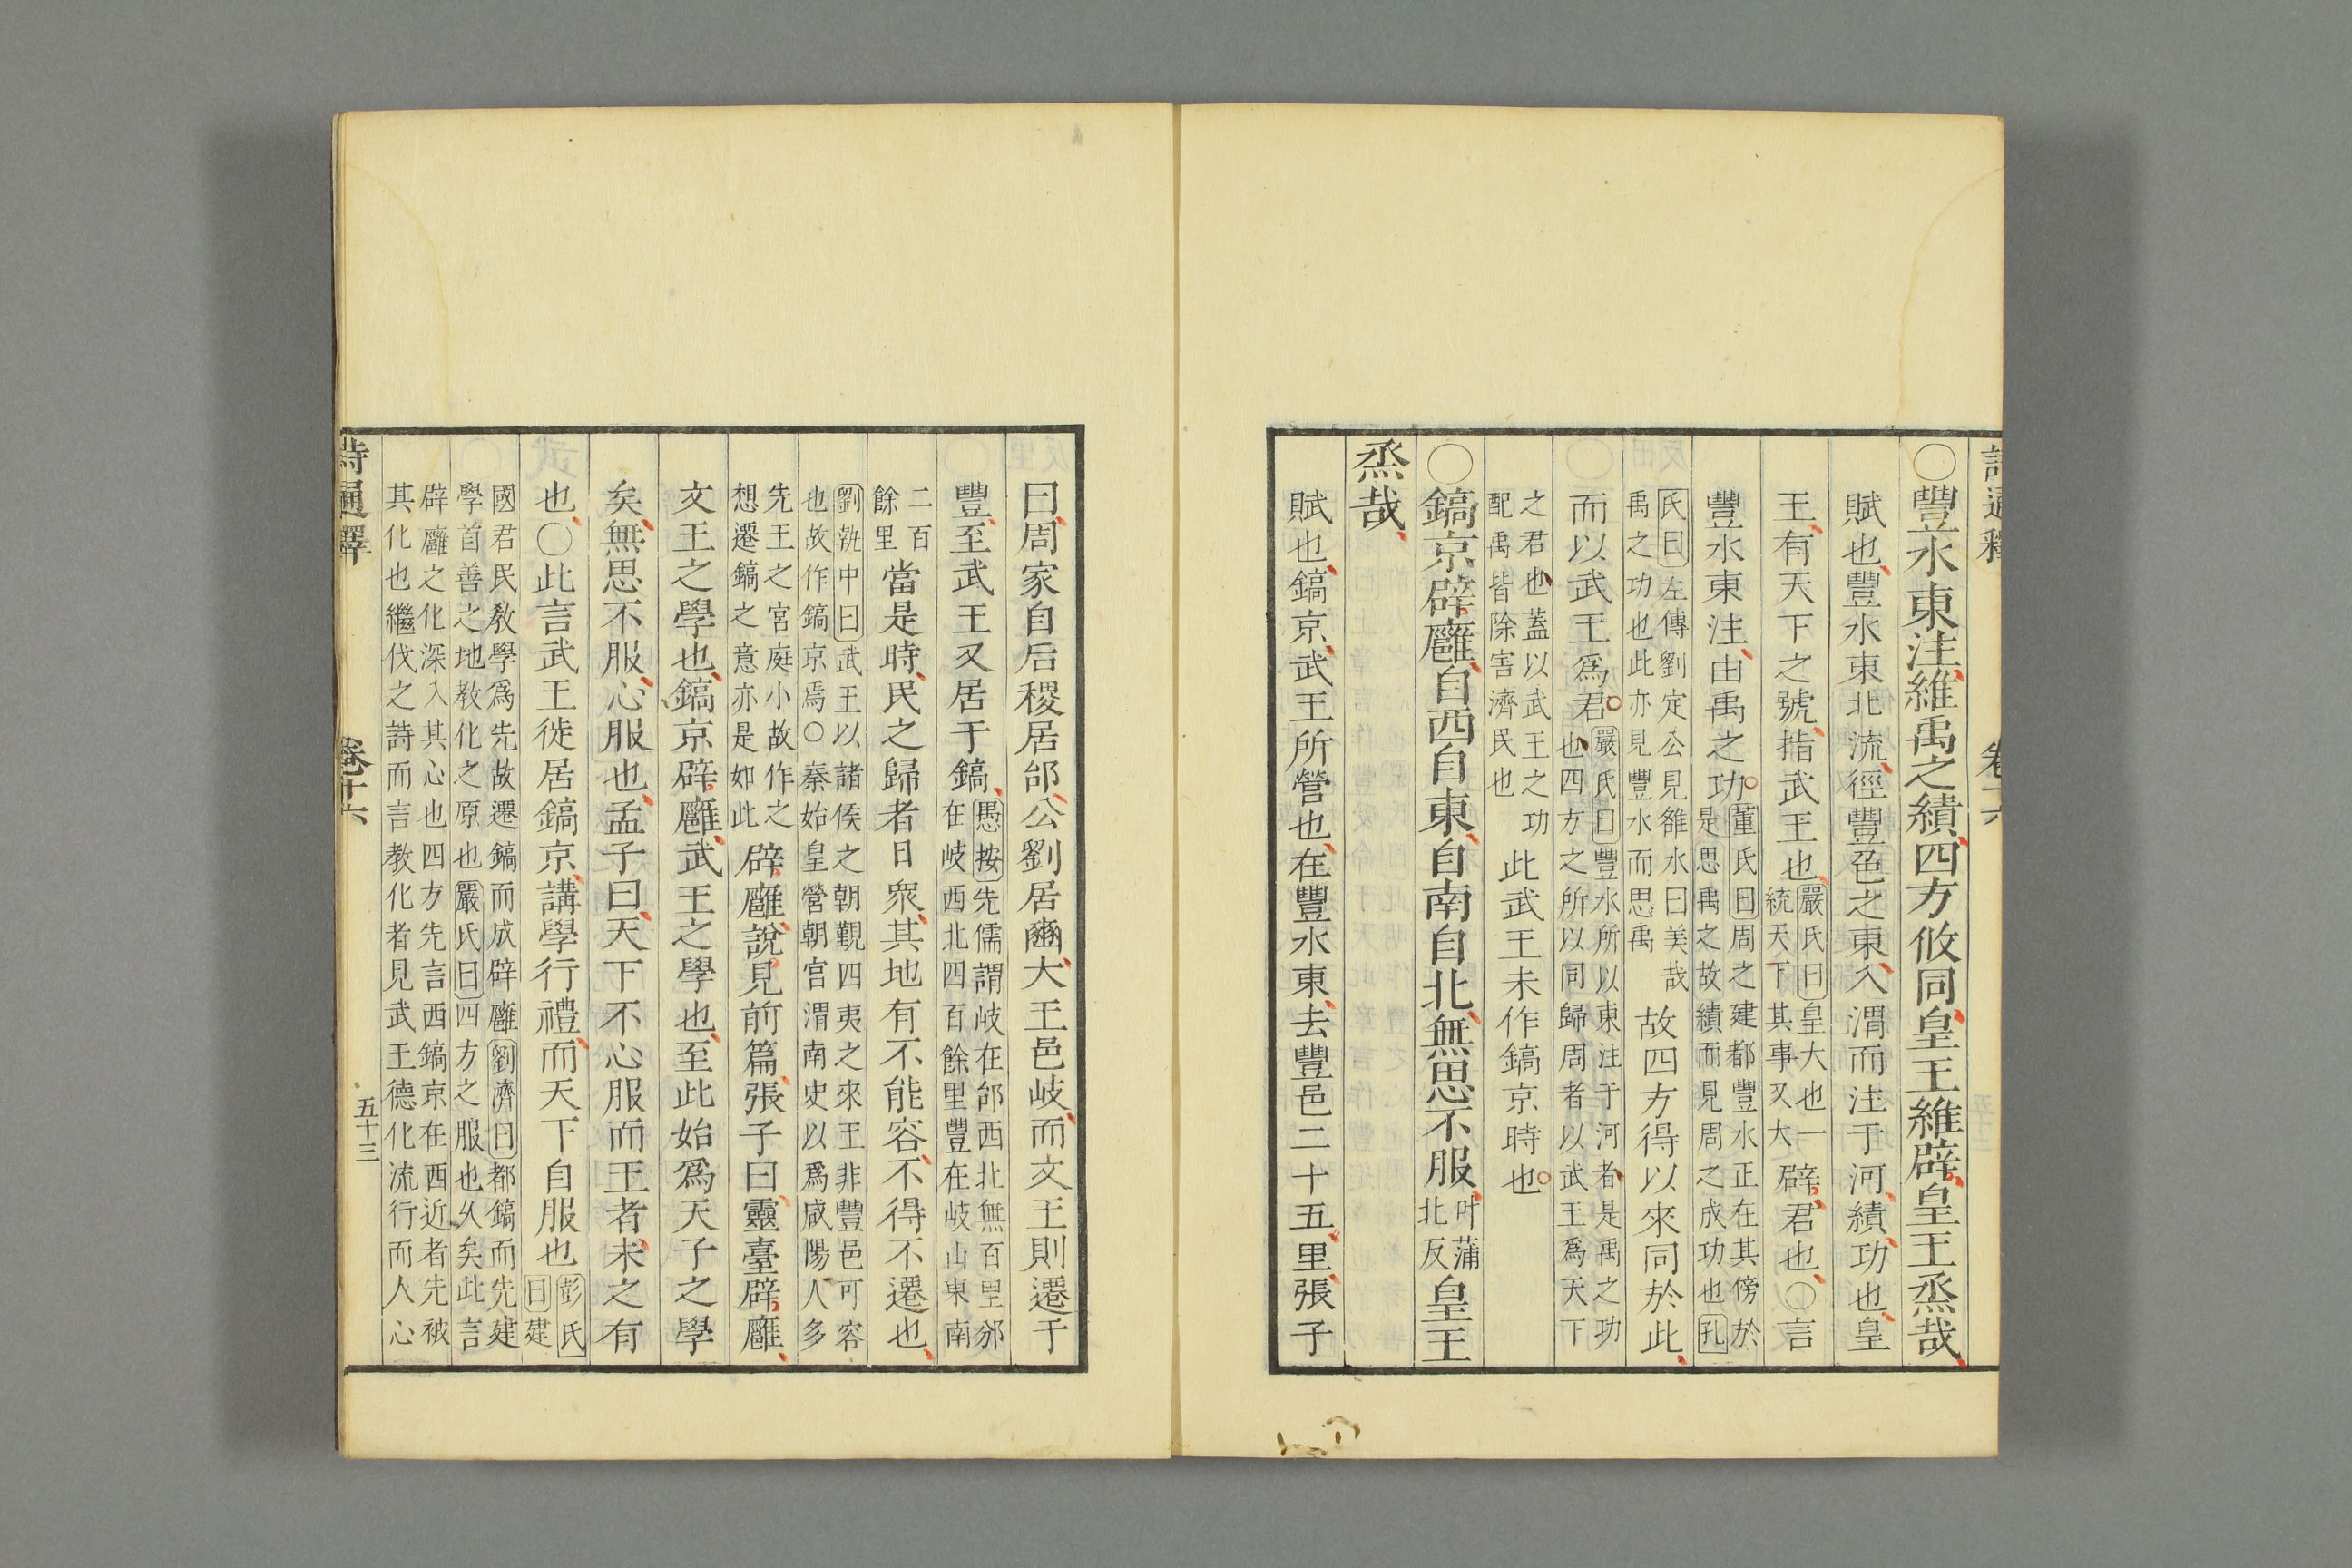 詩通釋 卷十六
〇豐水東注維禹之績四方攸同皇王維辟皇王烝哉
賦也豐水東北流徑豐邑之東入渭而注于河績功也皇
王有天下之號指武王也嚴氏曰皇大也一統天下其事又大辟君也〇言
豐水東注由禹之功董氏曰周之建都豐水正在其傍於是思禹之故績而見周之成功也孔
氏曰左傳劉定公見雒水曰美哉禹之功也此亦見豐水而思禹故四方得以來同於此
而以武王爲君嚴氏曰豐水所以東注于河者是禹之功也四方之所以同歸周者以武王爲天下
之君也蓋以武王之功配禹皆除害濟民也此武王未作鎬京時也
〇鎬京辟廱自西自東自南自北無思不服叶蒲北反皇王
烝哉
賦也鎬京武王所營也在豐水東去豐邑二十五里張子
曰周家自后稷居邰公劉居豳大王邑岐而文王則遷于
豐至武王又居于鎬愚按先儒謂岐在邰西北無百里邠在岐西北四百餘里豐在岐山東南
二百餘里當是時民之歸者日衆其地有不能容不得不遷也
劉執中曰武王以諸侯之朝覲四夷之來王非豐邑可容也故作鎬京焉〇秦始皇營朝宮渭南史以爲咸陽人多
先王之宮庭小故作之想遷鎬之意亦是如此辟廱說見前篇張子曰靈臺辟廱
文王之學也鎬京辟廱武王之學也至此始爲天子之學
矣無思不服心服也孟子曰天下不心服而王者未之有
也〇此言武王徙居鎬京講學行禮而天下自服也彭氏曰建
國君民敎學爲先故遷鎬而成辟廱劉濟曰都鎬而先建學首善之地敎化之原也嚴氏曰四方之服也久矣此言
辟廱之化深入其心也四方先言西鎬京在西近者先被其化也繼伐之詩而言敎化者見武王德化流行而人心
詩通釋 卷十六 五十三